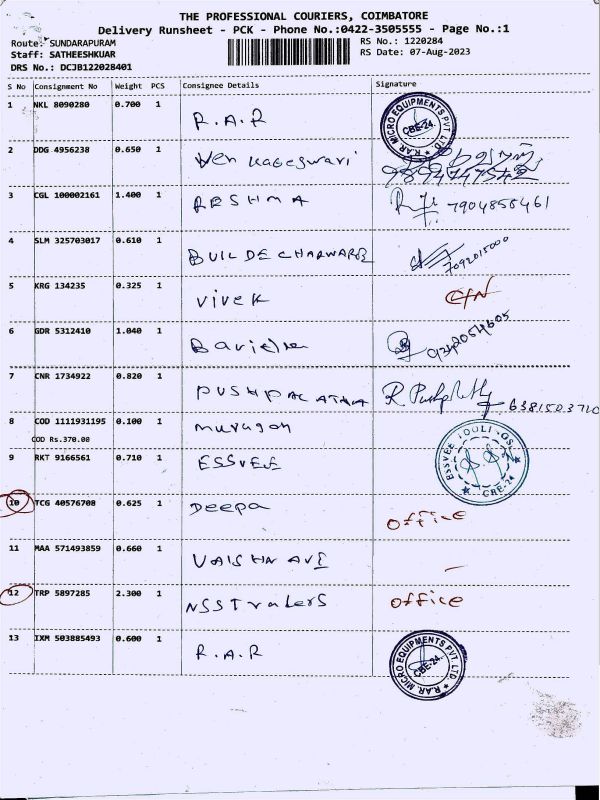 THE PROFESSIONAL COURIERS, COIMBATORE
Delivery Runsheet - PCK - Phone No.:0422-3505555 - Page No.:1
Route: SUNDARAPURAM
RS No.: 1220284
Staff: SATHEESHKUAR
RS Date: 07-Aug-2023
DRS No.: DCJB122028401
S No Consignment No Weight PCS Consignee Details Signature
1 NKL 8090280 0.700 1 R.A.R
R.AR. MICRO EQUIPMENTS PVT. LTD. CBE-24.
2 DDG 4956238 0.650 1
3 CGL 100002161 1.400 1 RESHMA 7904858461
4 SLM 325703017 0.610 1 BUILDECHARWARE 7092015000
5 KRG 134235 0.325 1 Vivek
6 GDR 5312410 1.040 1 9342054605
7 CNR 1734922 0.820 1 PUSHPALATHA R
8 COD 1111931195 0.100 1 murugan
COD Rs.370.00
9 RKT 9166561 0.710 1 ESSVEE
ESSVEE TOOLINGS CBE-24
10 TCG 40576708 0.625 1 Deepa office
11 MAA 571493859 0.660 1 VAISHNAVE
12 TRP 5897285 2.300 1 NSS Traders office
13 IXM 503885493 0.600 1 R.A.R
R.AR. MICRO EQUIPMENTS PVT. LTD. CBE-24.